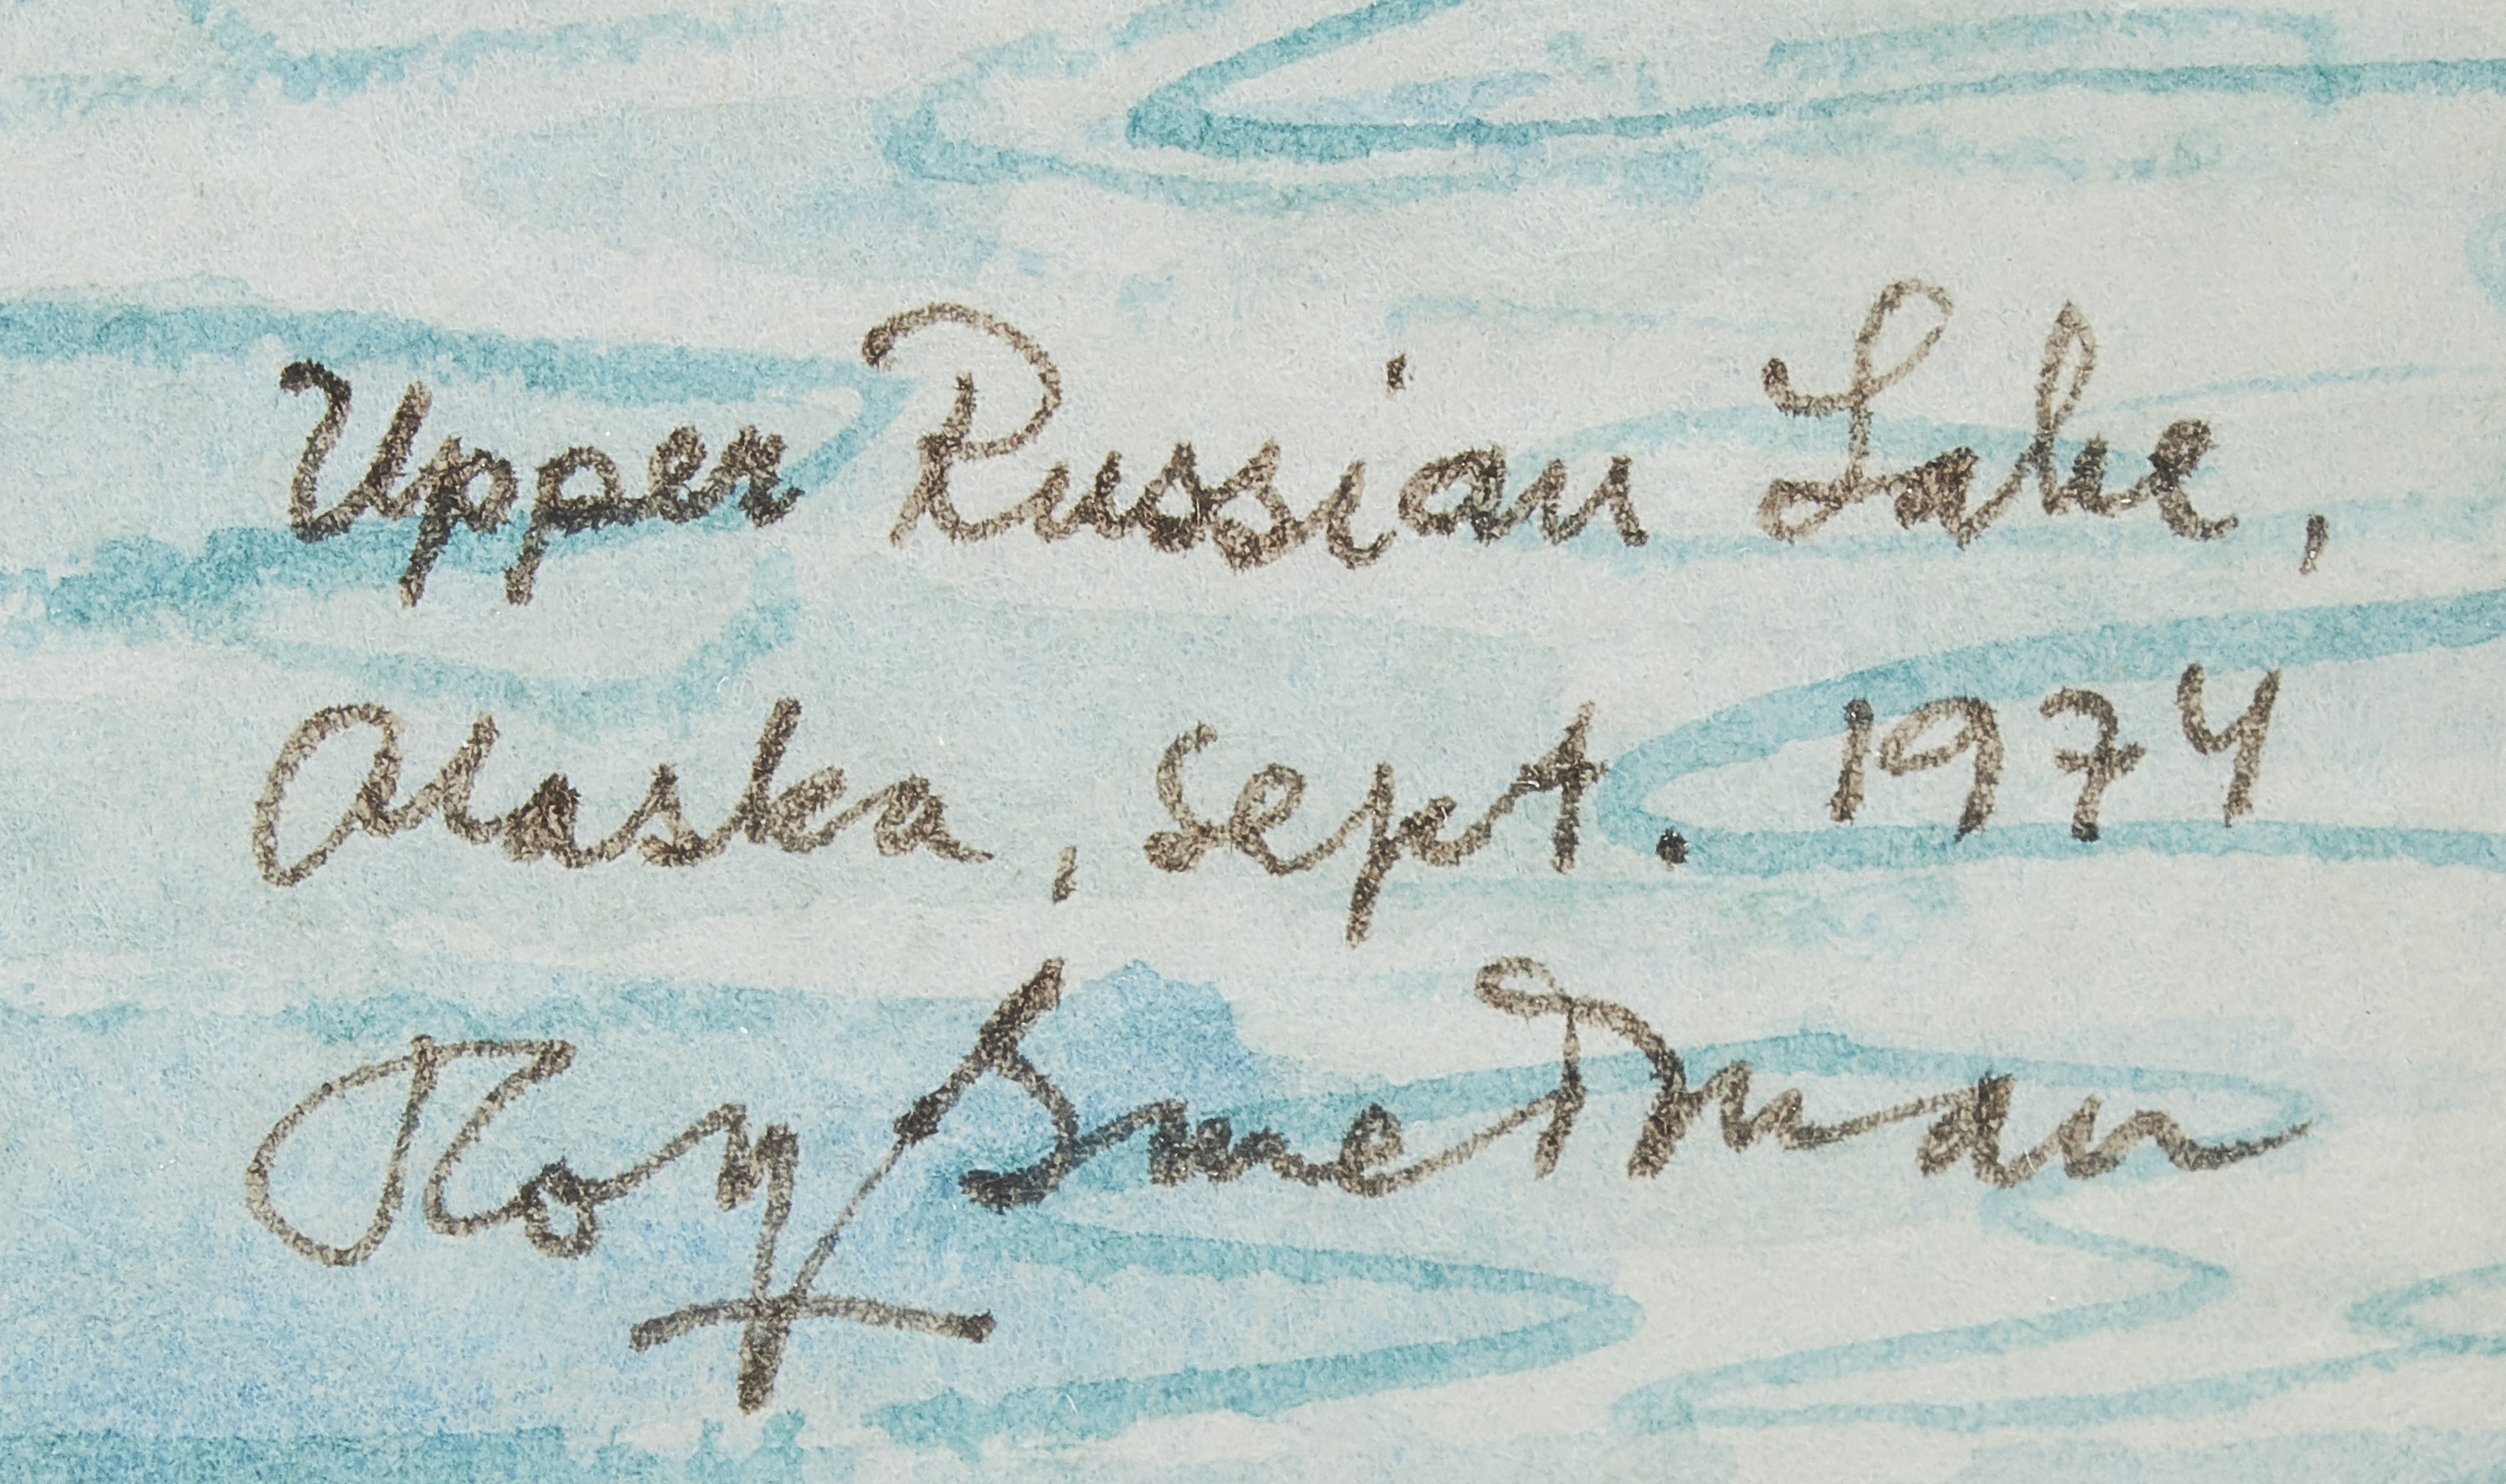 Upper Russian Lake,
Alaska, Sept. 1974
Roy Smetman